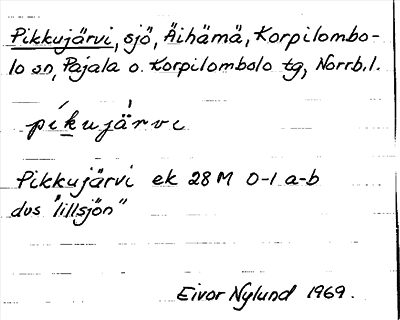 Pikkujärvi, sjö, Äihämä, Korpilombo-
lo sn, Pajala o. Korpilombolo tg, Norrb.l.
píkujä̀rvi
Pikkujärvi ek 28 M 0-1 a-b
dvs "lillsjön"
Eivor Nylund 1969.